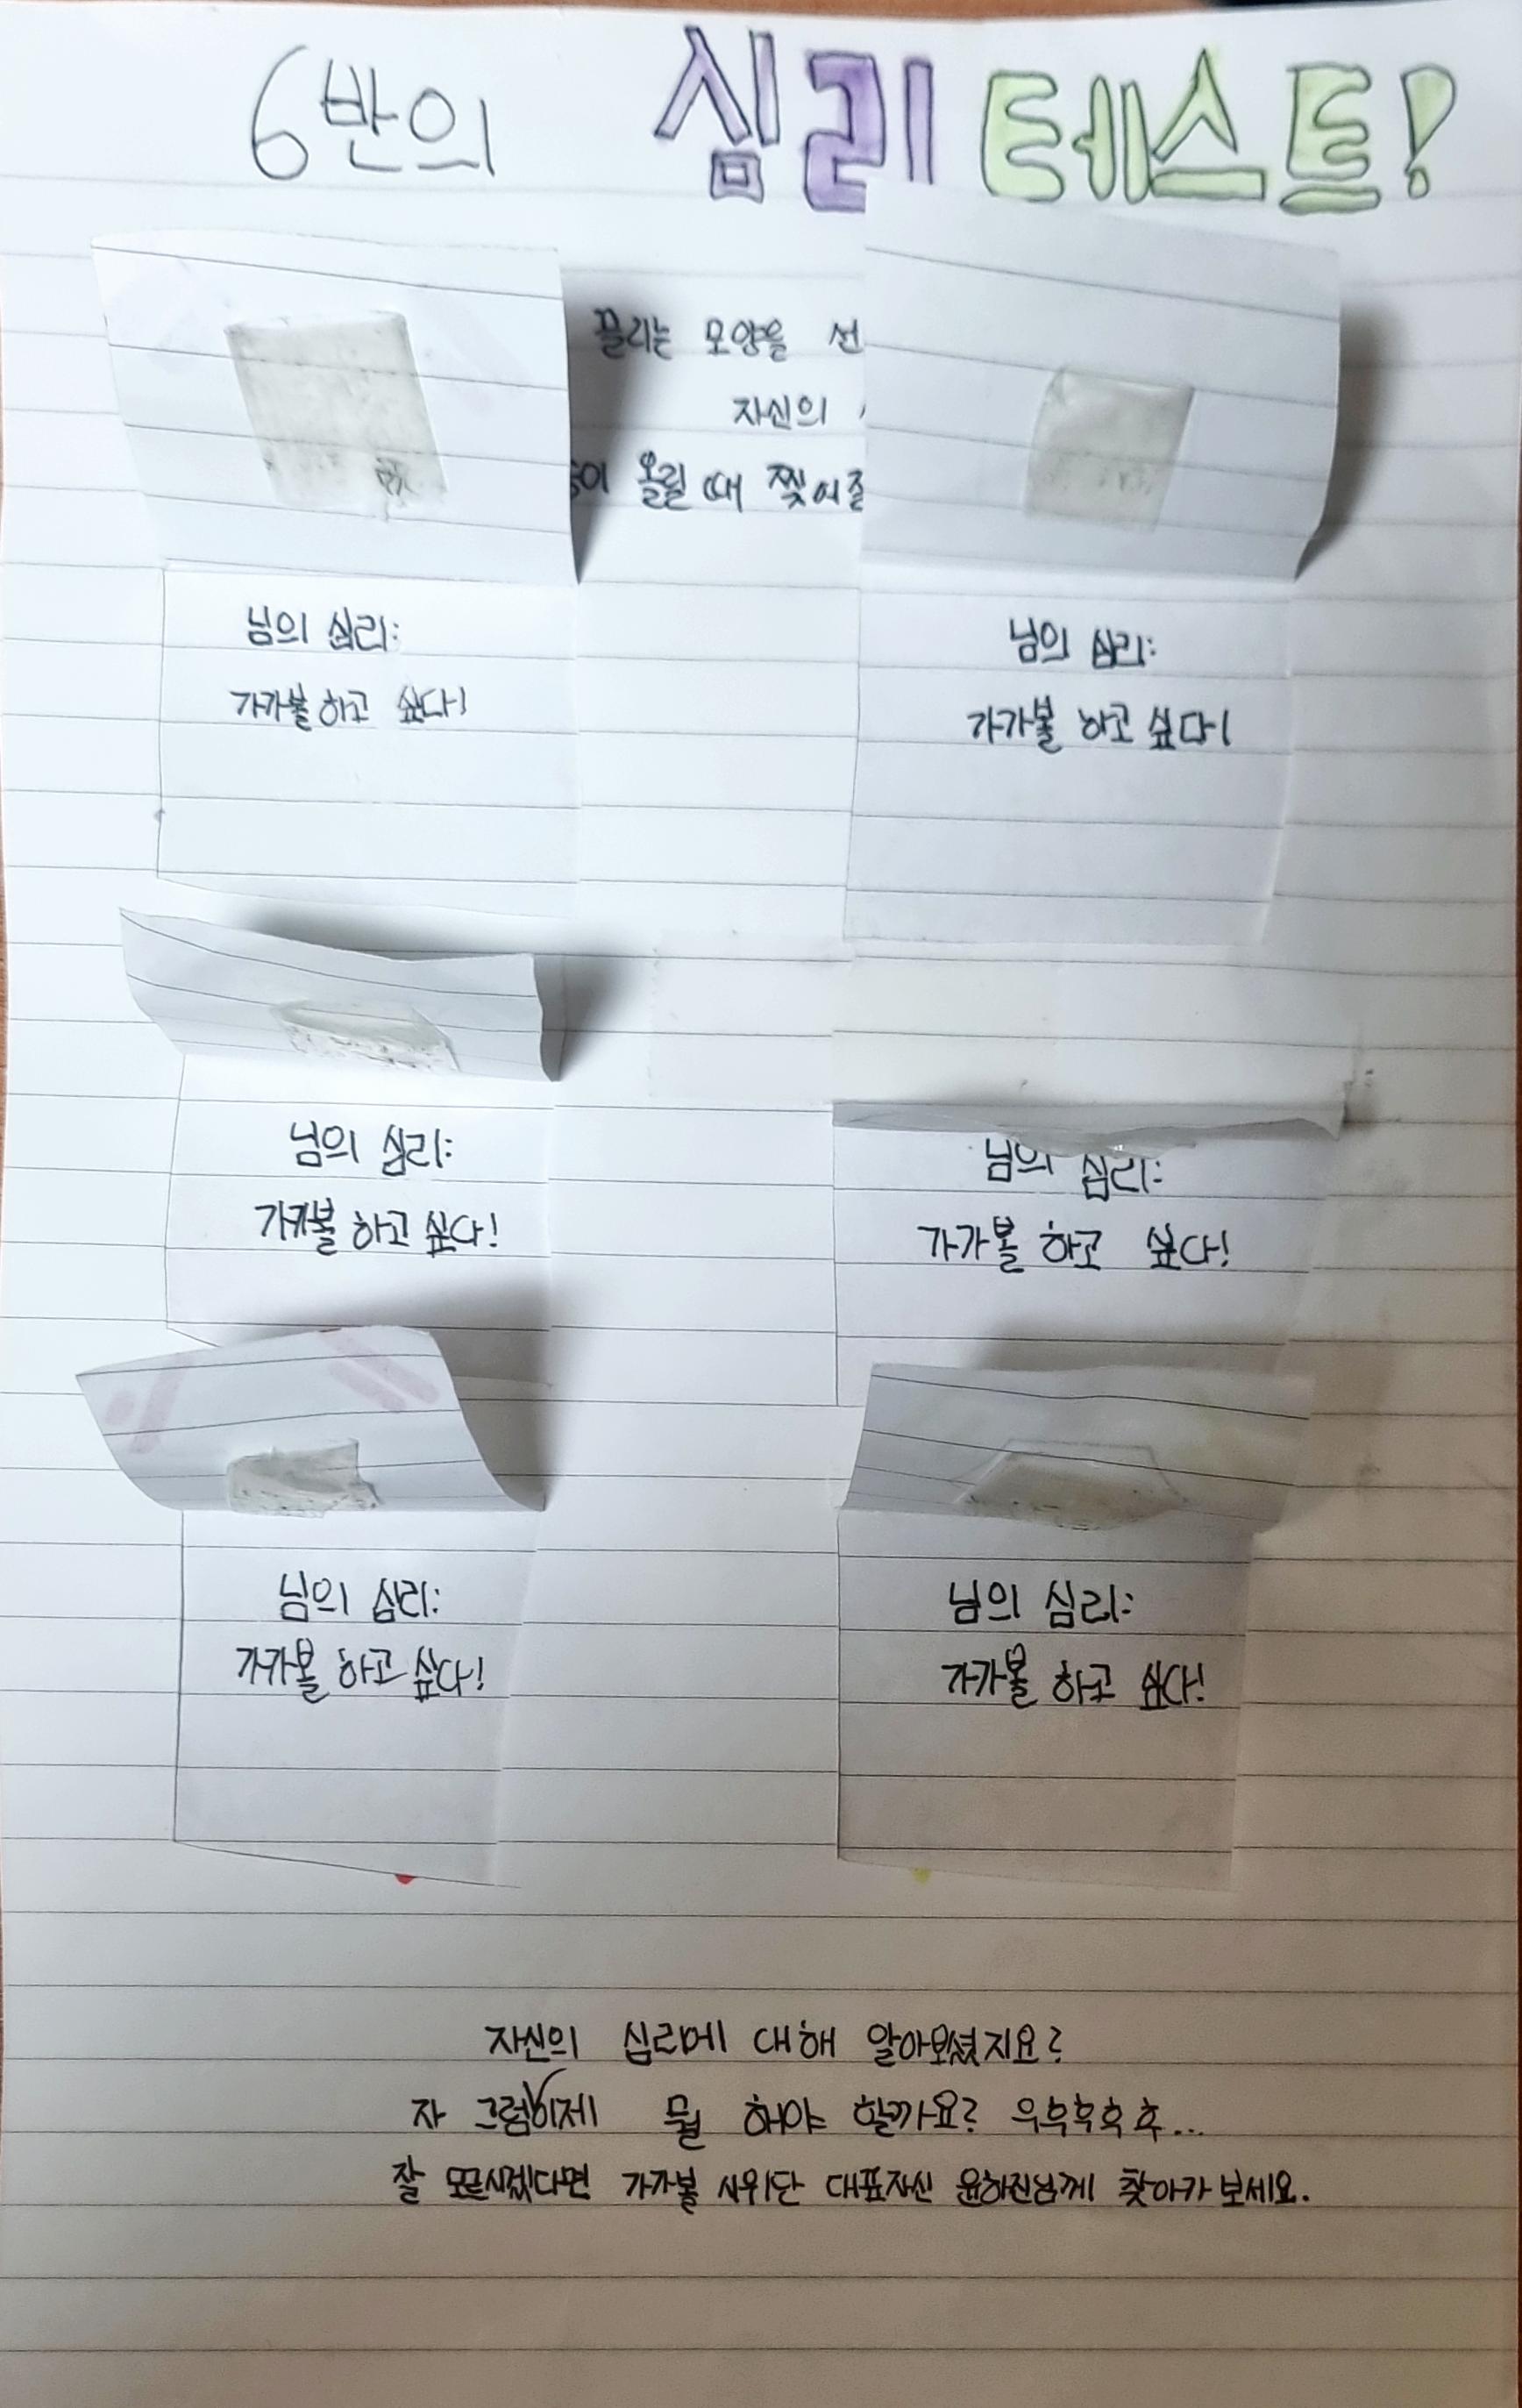 6반의 심리 테스트!
끌리는 모양을 선
자신의
이 올릴 때 찢어질
님의 심리:
가가볼 하고 싶다!
님의 심리:
가가볼 하고 싶다!
님의 심리:
가가볼 하고 싶다!
님의 심리:
가가볼 하고 싶다!
님의 심리:
가가볼 하고 싶다!
님의 심리:
가가볼 하고 싶다!
자신의 심리에 대해 알아보셨지요?
자 그럼 이제 뭘 해야 할까요? 우후후후후...
잘 모르시겠다면 가가볼 시위단 대표자신 윤하진님께 찾아가 보세요.